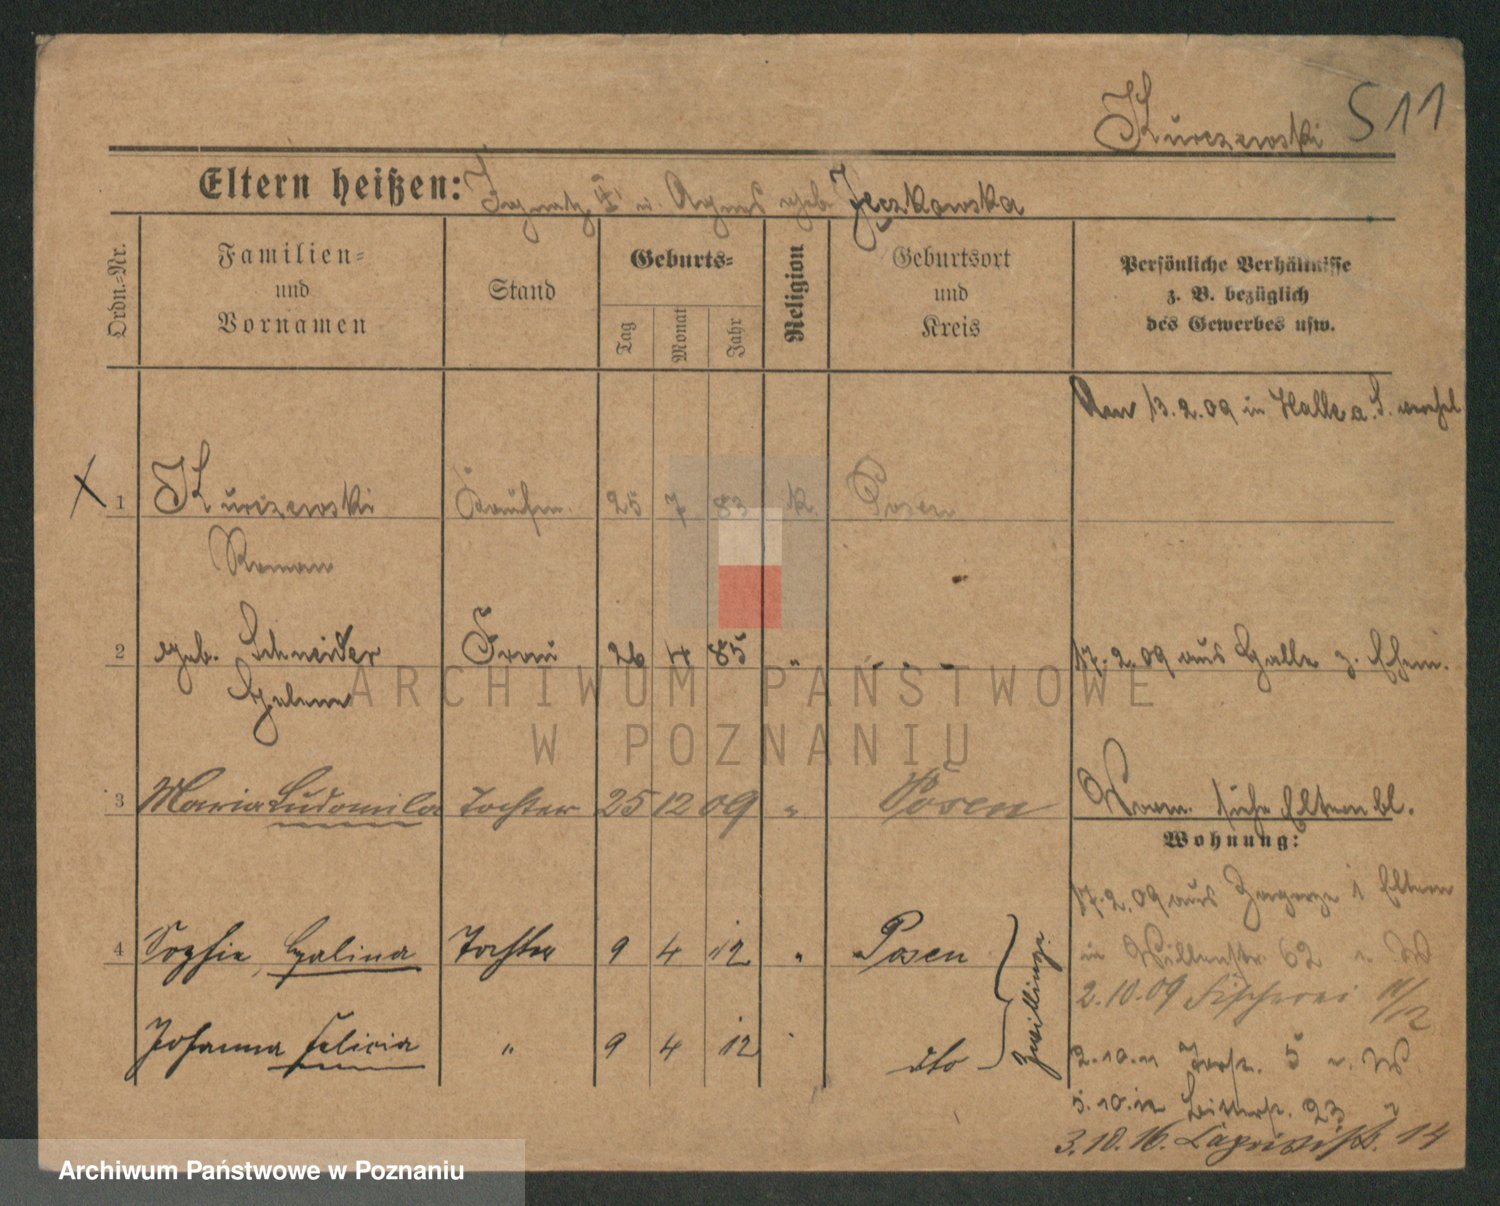 Kurczewski S 11
Eltern heißen: Ignatz u. Agnes geb. Jeczkowska
Ordn.-Nr.
Familien-
und
Vornamen
Stand
Geburts-
Tag
Monat
Jahr
Religion
Geburtsort
und
Kreis
Persönliche Verhältnisse
z. B. bezüglich
des Gewerbes usw.
Am 13.2.09 in Halle a. S.
1 Kurczewski 25 7 83 k Posen
Roman
2 geb. Schneider Frau 26 4 85 " " 17.2.09 aus Halle z.
Helene
3 Maria Ludomila Tochter 25 12 09 " Posen
siehe Eltern bl.
Wohnung:
17.2.09 aus i Eltern
4 Sophie, Halina Tochter 9 4 12 " Posen
in 62 W
2.10.09 Fischerei 11/12
Johanna Felicia " 9 4 12 dto
Zwillinge
2.10.11 5 v. W
5.10.12 23
3.10.16. 14
ARCHIWUM PAŃSTWOWE
W POZNANIU
Archiwum Państwowe w Poznaniu